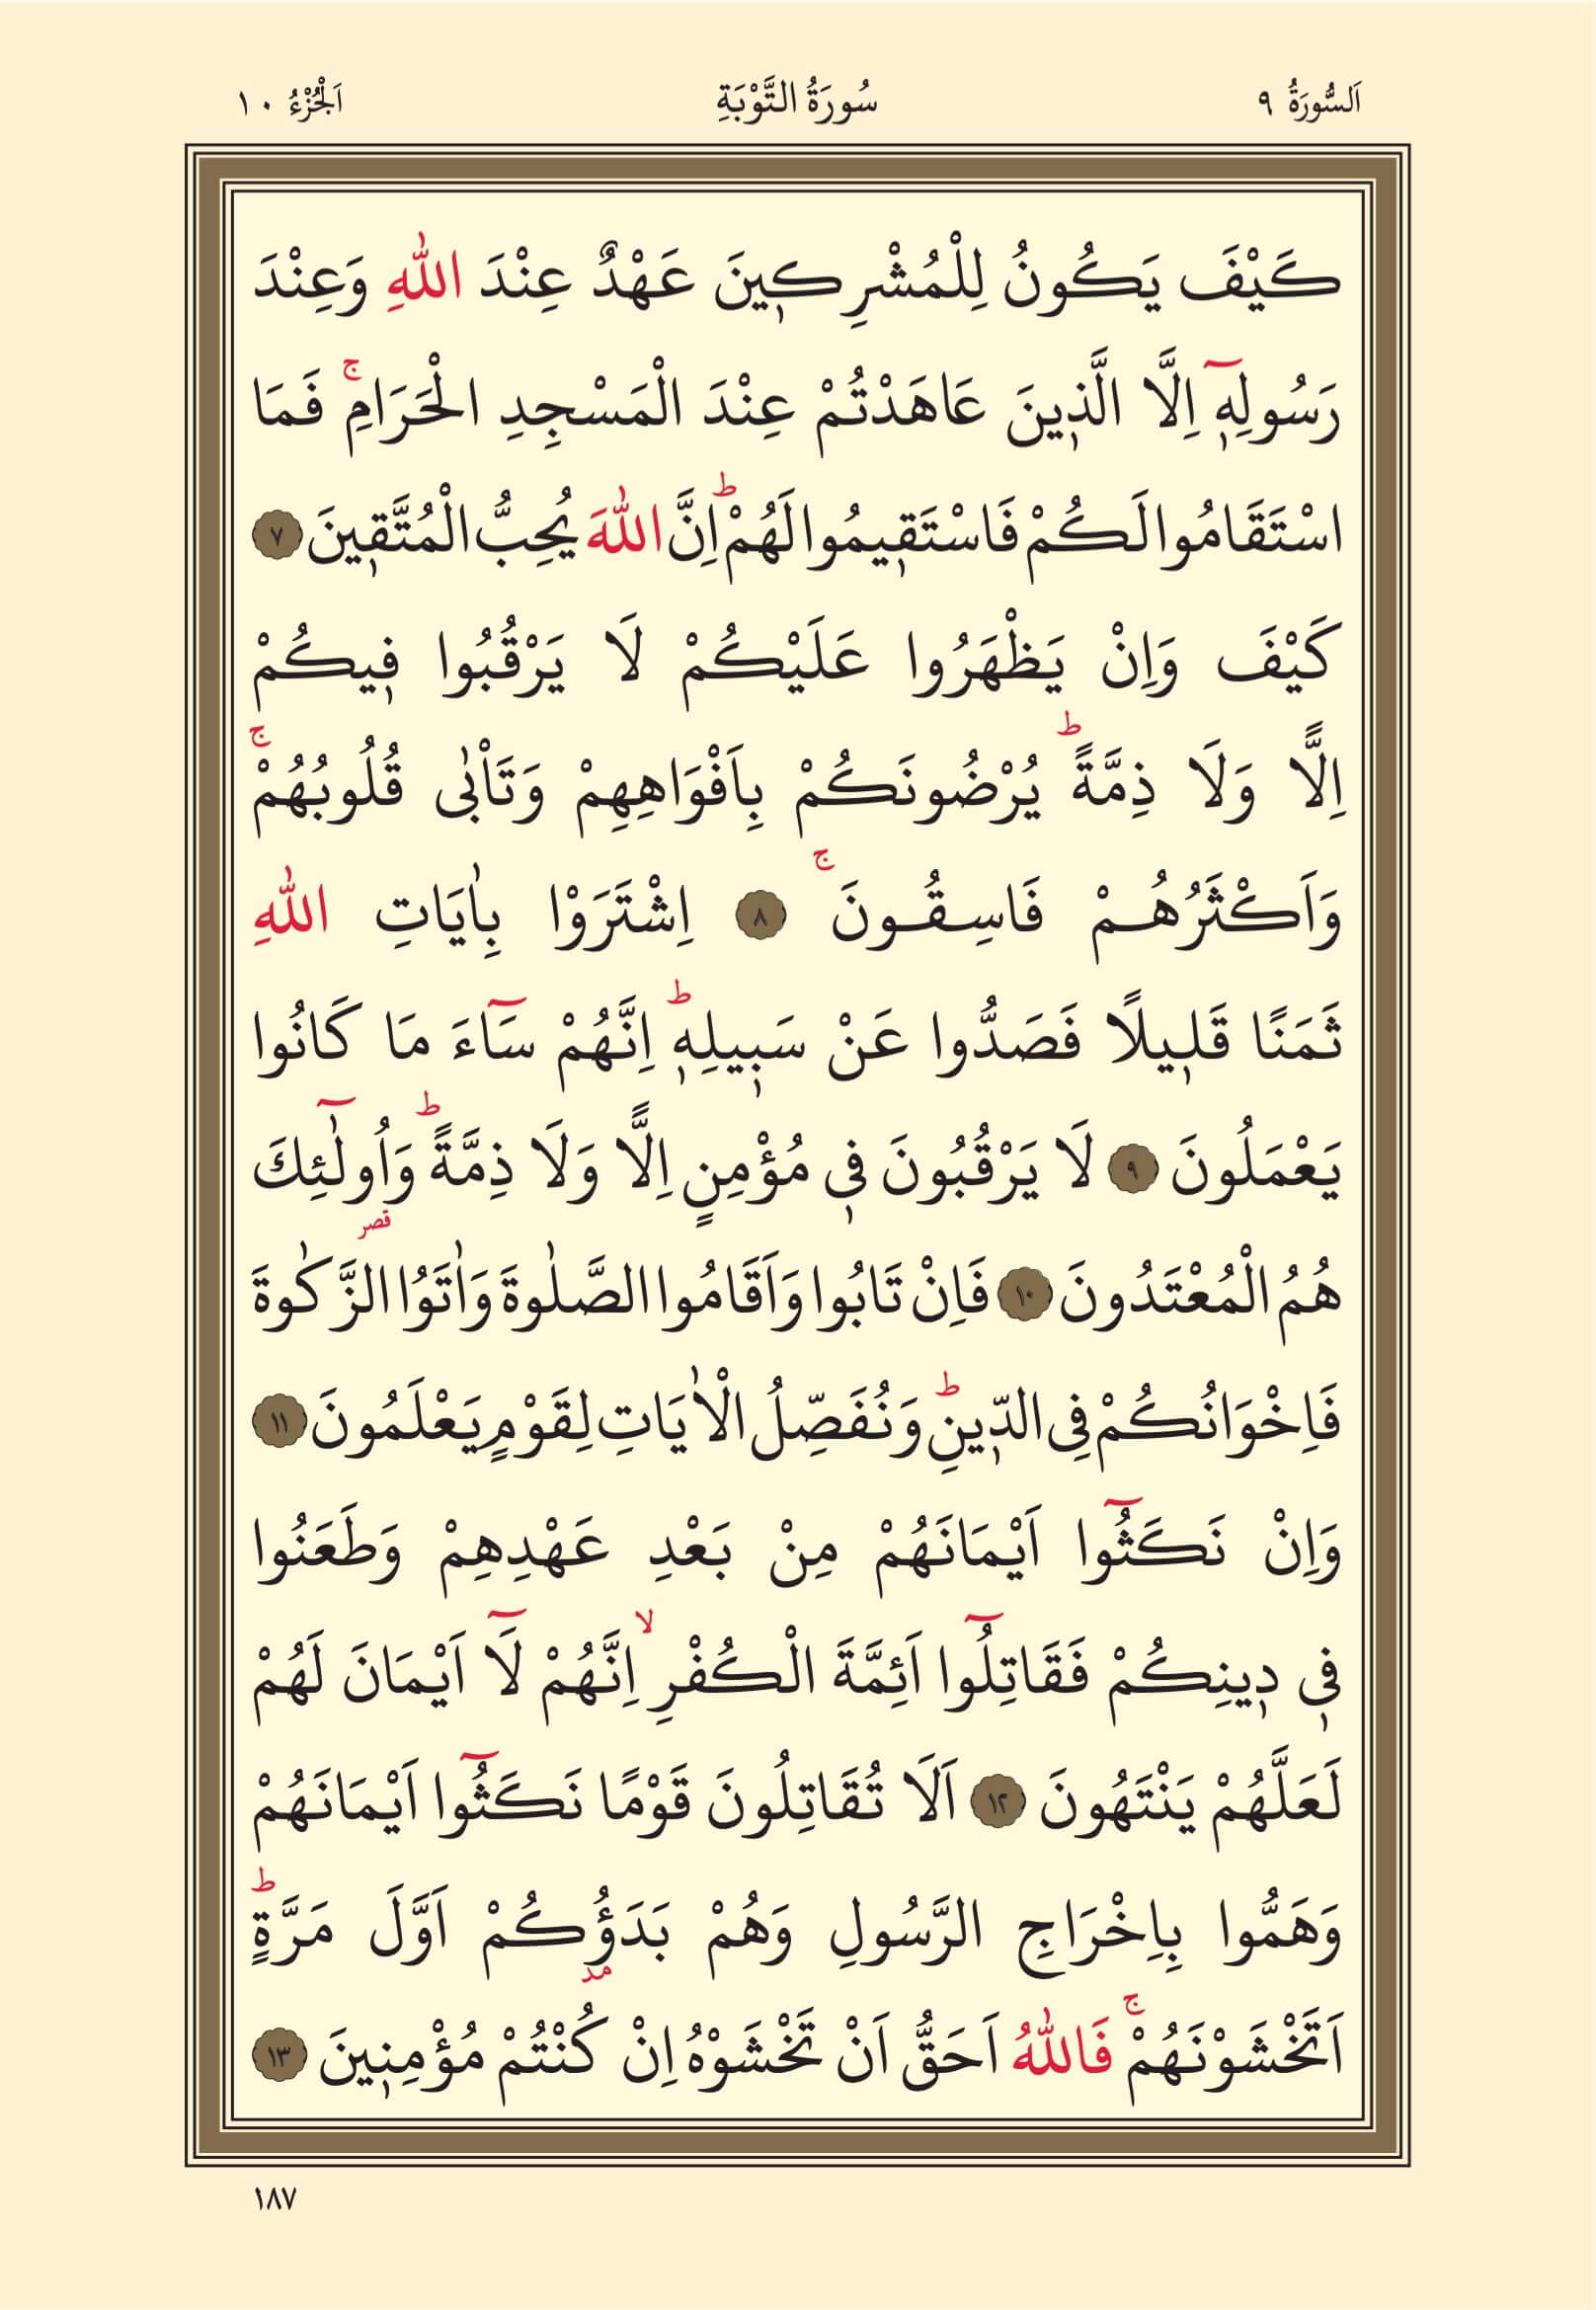 اَلسُّورَةُ ٩ سُورَةُ التَّوْبَةِ اَلْجُزْءُ ١٠
كَيْفَ يَكُونُ لِلْمُشْرِكٖينَ عَهْدٌ عِنْدَ اللّٰهِ وَعِنْدَ
رَسُولِهٖٓ اِلَّا الَّذٖينَ عَاهَدْتُمْ عِنْدَ الْمَسْجِدِ الْحَرَامِۚ فَمَا
اسْتَقَامُوا لَكُمْ فَاسْتَقٖيمُوا لَهُمْؕ اِنَّ اللّٰهَ يُحِبُّ الْمُتَّقٖينَ ٧
كَيْفَ وَاِنْ يَظْهَرُوا عَلَيْكُمْ لَا يَرْقُبُوا فٖيكُمْ
اِلًّا وَلَا ذِمَّةًؕ يُرْضُونَكُمْ بِاَفْوَاهِهِمْ وَتَاْبٰى قُلُوبُهُمْۚ
وَاَكْثَرُهُمْ فَاسِقُونَۚ ٨ اِشْتَرَوْا بِاٰيَاتِ اللّٰهِ
ثَمَنًا قَلٖيلًا فَصَدُّوا عَنْ سَبٖيلِهٖؕ اِنَّهُمْ سَٓاءَ مَا كَانُوا
يَعْمَلُونَ ٩ لَا يَرْقُبُونَ فٖى مُؤْمِنٍ اِلًّا وَلَا ذِمَّةًؕ وَاُولٰٓئِكَ
هُمُ الْمُعْتَدُونَ ١٠ فَاِنْ تَابُوا وَاَقَامُوا الصَّلٰوةَ وَاٰتَوُا الزَّكٰوةَ قصر
فَاِخْوَانُكُمْ فِى الدّٖينِؕ وَنُفَصِّلُ الْاٰيَاتِ لِقَوْمٍ يَعْلَمُونَ ١١
وَاِنْ نَكَثُٓوا اَيْمَانَهُمْ مِنْ بَعْدِ عَهْدِهِمْ وَطَعَنُوا
فٖى دٖينِكُمْ فَقَاتِلُٓوا اَئِمَّةَ الْكُفْرِۙ اِنَّهُمْ لَٓا اَيْمَانَ لَهُمْ
لَعَلَّهُمْ يَنْتَهُونَ ١٢ اَلَا تُقَاتِلُونَ قَوْمًا نَكَثُٓوا اَيْمَانَهُمْ
وَهَمُّوا بِاِخْرَاجِ الرَّسُولِ وَهُمْ بَدَؤُكُمْ اَوَّلَ مَرَّةٍؕ مد
اَتَخْشَوْنَهُمْۚ فَاللّٰهُ اَحَقُّ اَنْ تَخْشَوْهُ اِنْ كُنْتُمْ مُؤْمِنٖينَ ١٣
١٨٧